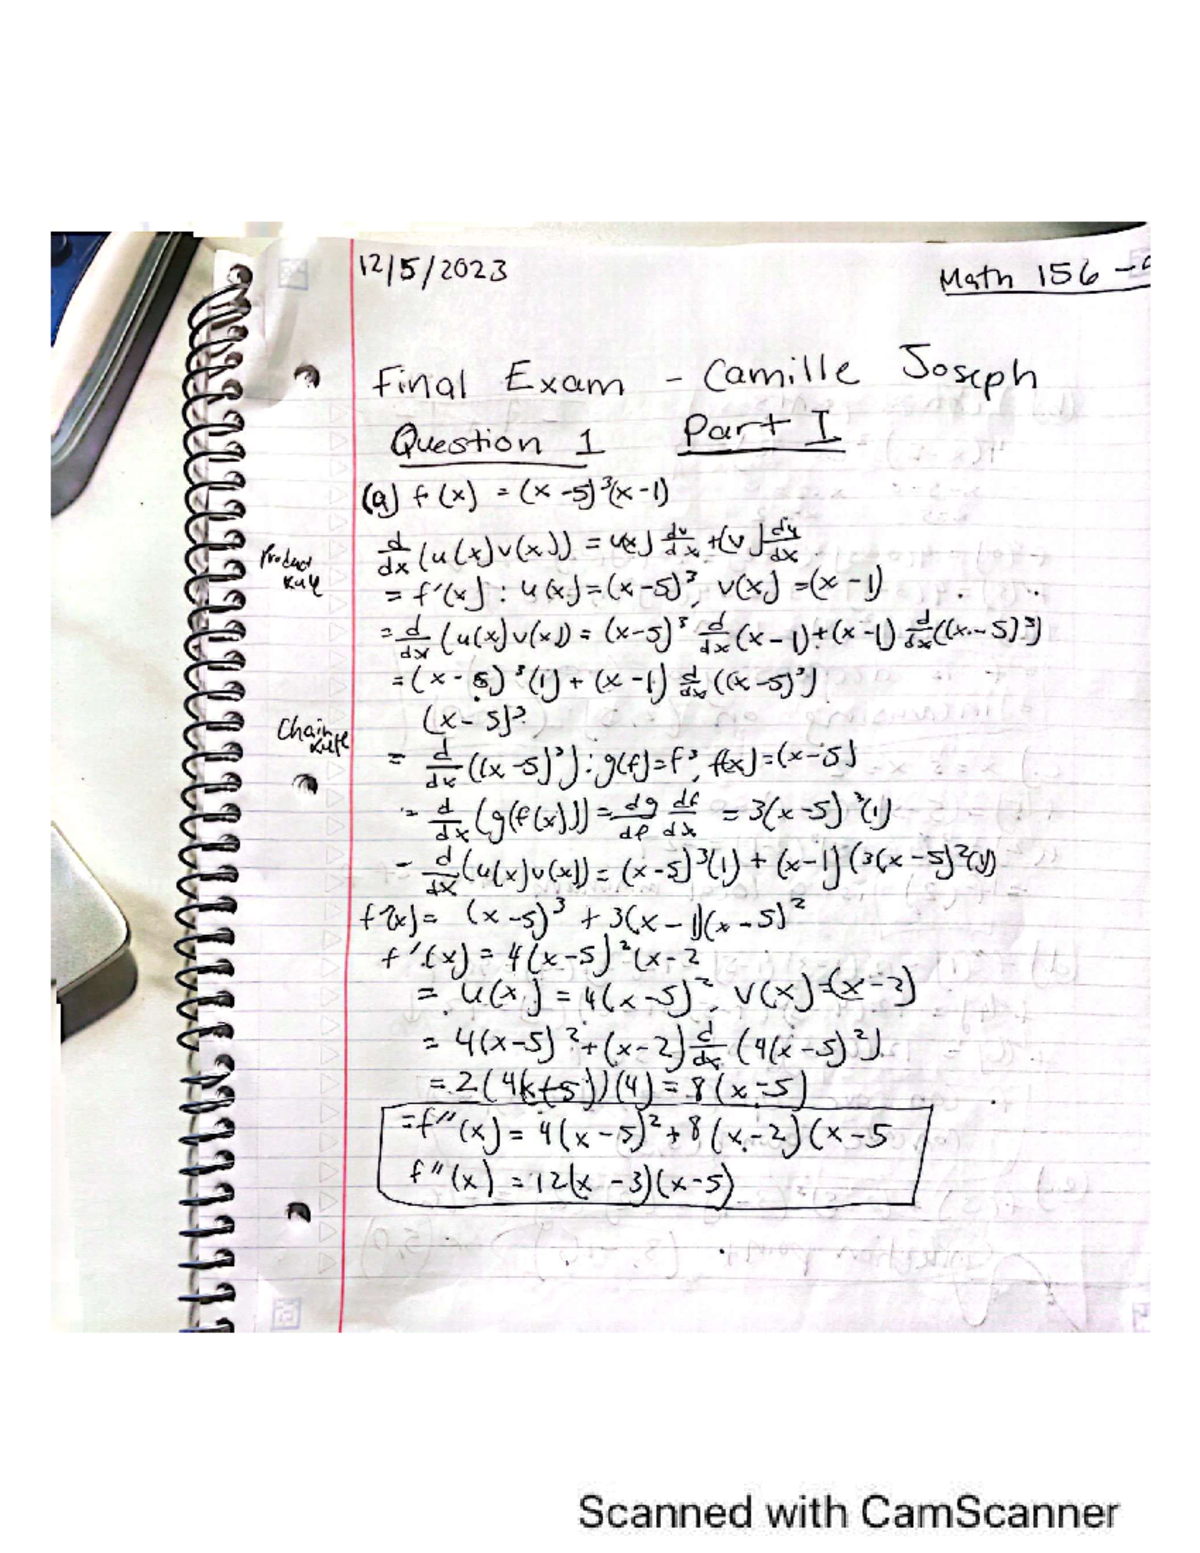 12/5/2023
Math 156 -
Final Exam - Camille Joseph
Question 1 Part I
(a) f(x) = (x-5)³(x-1)
Product Rule
d/dx (u(x)v(x)) = u(x) dv/dx + (v) du/dx
= f'(x) : u(x) = (x-5)³, v(x) = (x-1)
= d/dx (u(x)v(x)) = (x-5)³ d/dx (x-1) + (x-1) d/dx ((x-5)³)
= (x-5)³(1) + (x-1) d/dx ((x-5)³)
(x-5)³
Chain Rule
= d/dx ((x-5)³) : g(f) = f³, f(x) = (x-5)
= d/dx (g(f(x))) = dg/df df/dx = 3(x-5)²(1)
= d/dx (u(x)v(x)) = (x-5)³(1) + (x-1)(3(x-5)²(1))
f'(x) = (x-5)³ + 3(x-1)(x-5)²
f'(x) = 4(x-5)²(x-2
= u(x) = 4(x-5)², v(x) = (x-2)
= 4(x-5)² + (x-2) d/dx (4(x-5)²)
= 2(4(x-5))(4) = 8(x-5)
= f''(x) = 4(x-5)² + 8(x-2)(x-5
f''(x) = 12(x-3)(x-5)
Scanned with CamScanner